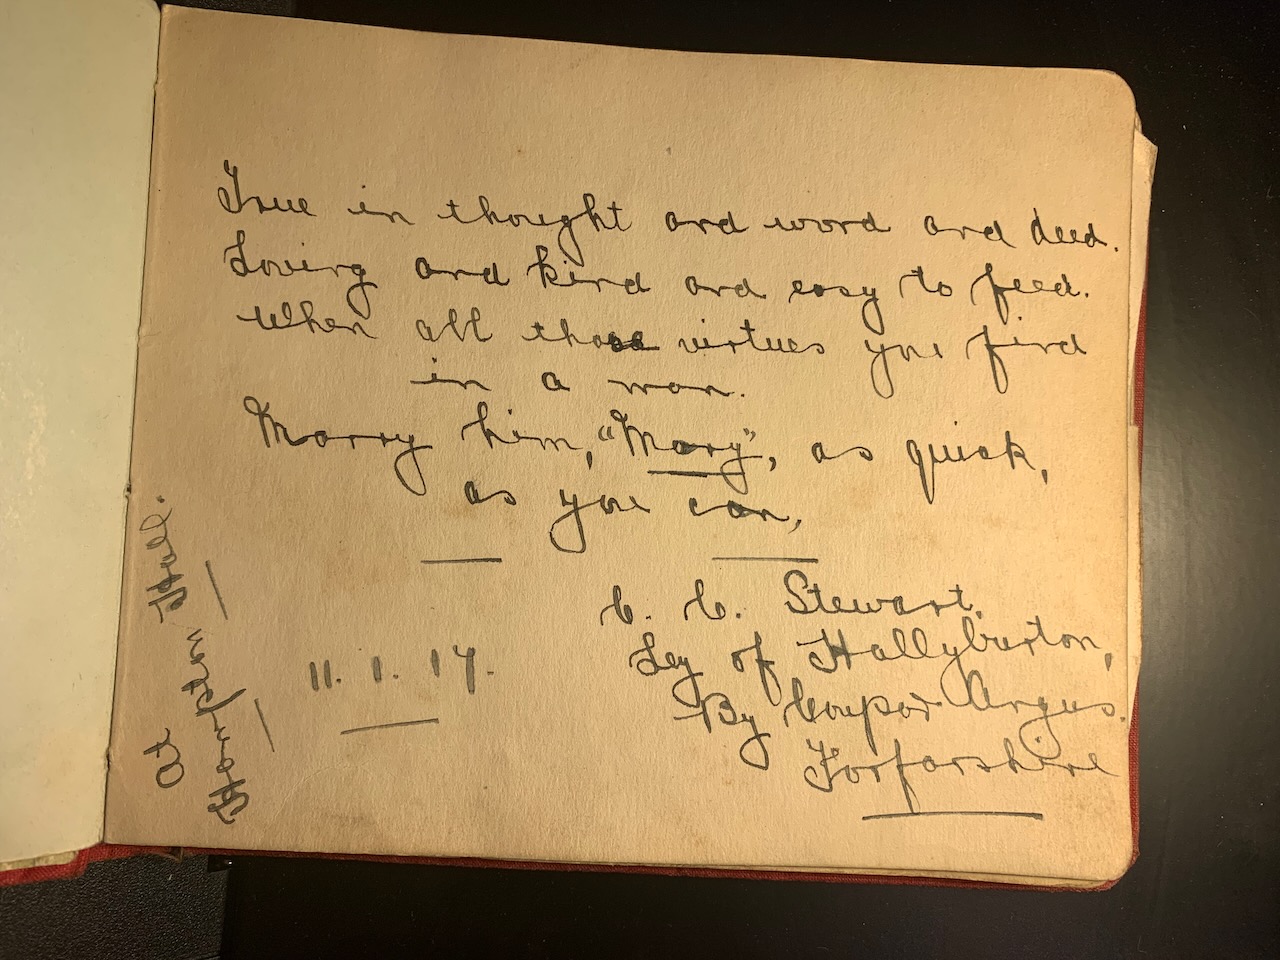 True in thought and word and deed.
Loving and kind and easy to feed.
When all those virtues you find
in a man.
Marry him, "Mary", as quick,
as you can,
C. C. Stewart.
Ley of Hallyburton,
By Coupar Angus.
Forfarshire
11. 1. 17.
At
Hampden Hall.